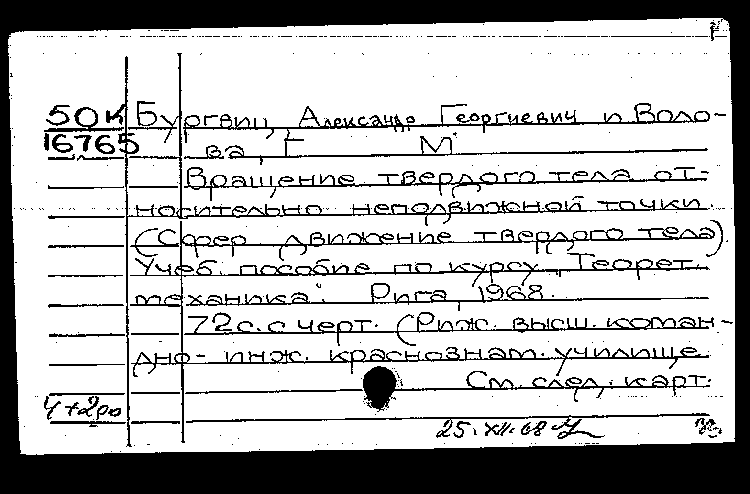 50к Бургвиц, Александр Георгиевич и Воло-
16765 ва, Г М
Вращение твердого тела от-
носительно неподвижной точки.
(Сфер движение твердого тела).
Учеб. пособие по курсу „Теорет.
механика". Рига, 1968.
72 с. с черт. (Риж. высш. коман-
дно-инж. краснознам. училище
См. след. карт.
25.XII.68